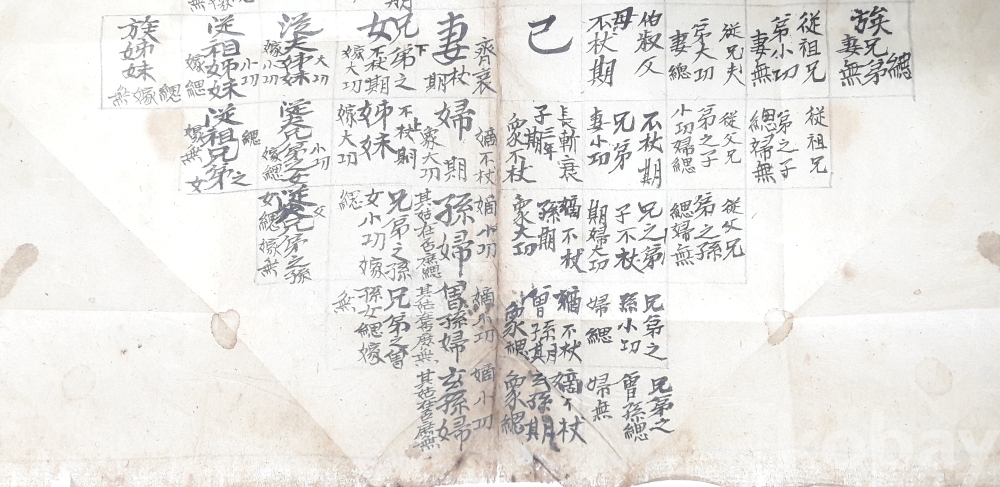 族兄弟緦
妻無
從祖兄
弟小功
妻無
從兄夫
弟大功
妻緦
伯叔父
母
不杖期
己
齊衰
妻杖期
兄弟之
女不杖期
嫁大功
大功
小功
嫁
從祖姊妹
小功
嫁緦
族姊妹
緦
嫁無
從祖兄
弟之子
緦婦無
從父兄
弟之子
小功婦緦
不杖期
兄弟
妻小功
長斬衰
子三年
期
衆不杖
嫡不杖
婦期
衆大功
不杖期
姊妹
嫁大功
小功
嫁緦
緦
從祖兄弟之
女
嫁無
從父兄
弟之孫
緦婦無
兄之弟
子不杖
期婦大功
嫡不杖
孫期
衆大功
嫡小功
孫婦
其姑在否應緦
兄弟之孫
女小功嫁
緦
從父兄弟之孫
女緦嫁無
兄弟之
孫小功
婦緦
嫡不杖
曾孫期
衆緦
嫡小功
曾孫婦
其姑在否應無
兄弟之曾
孫女緦嫁
無
兄弟之
曾孫緦
婦無
嫡不杖
玄孫期
衆緦
嫡小功
玄孫婦
其姑在否應無
kobay